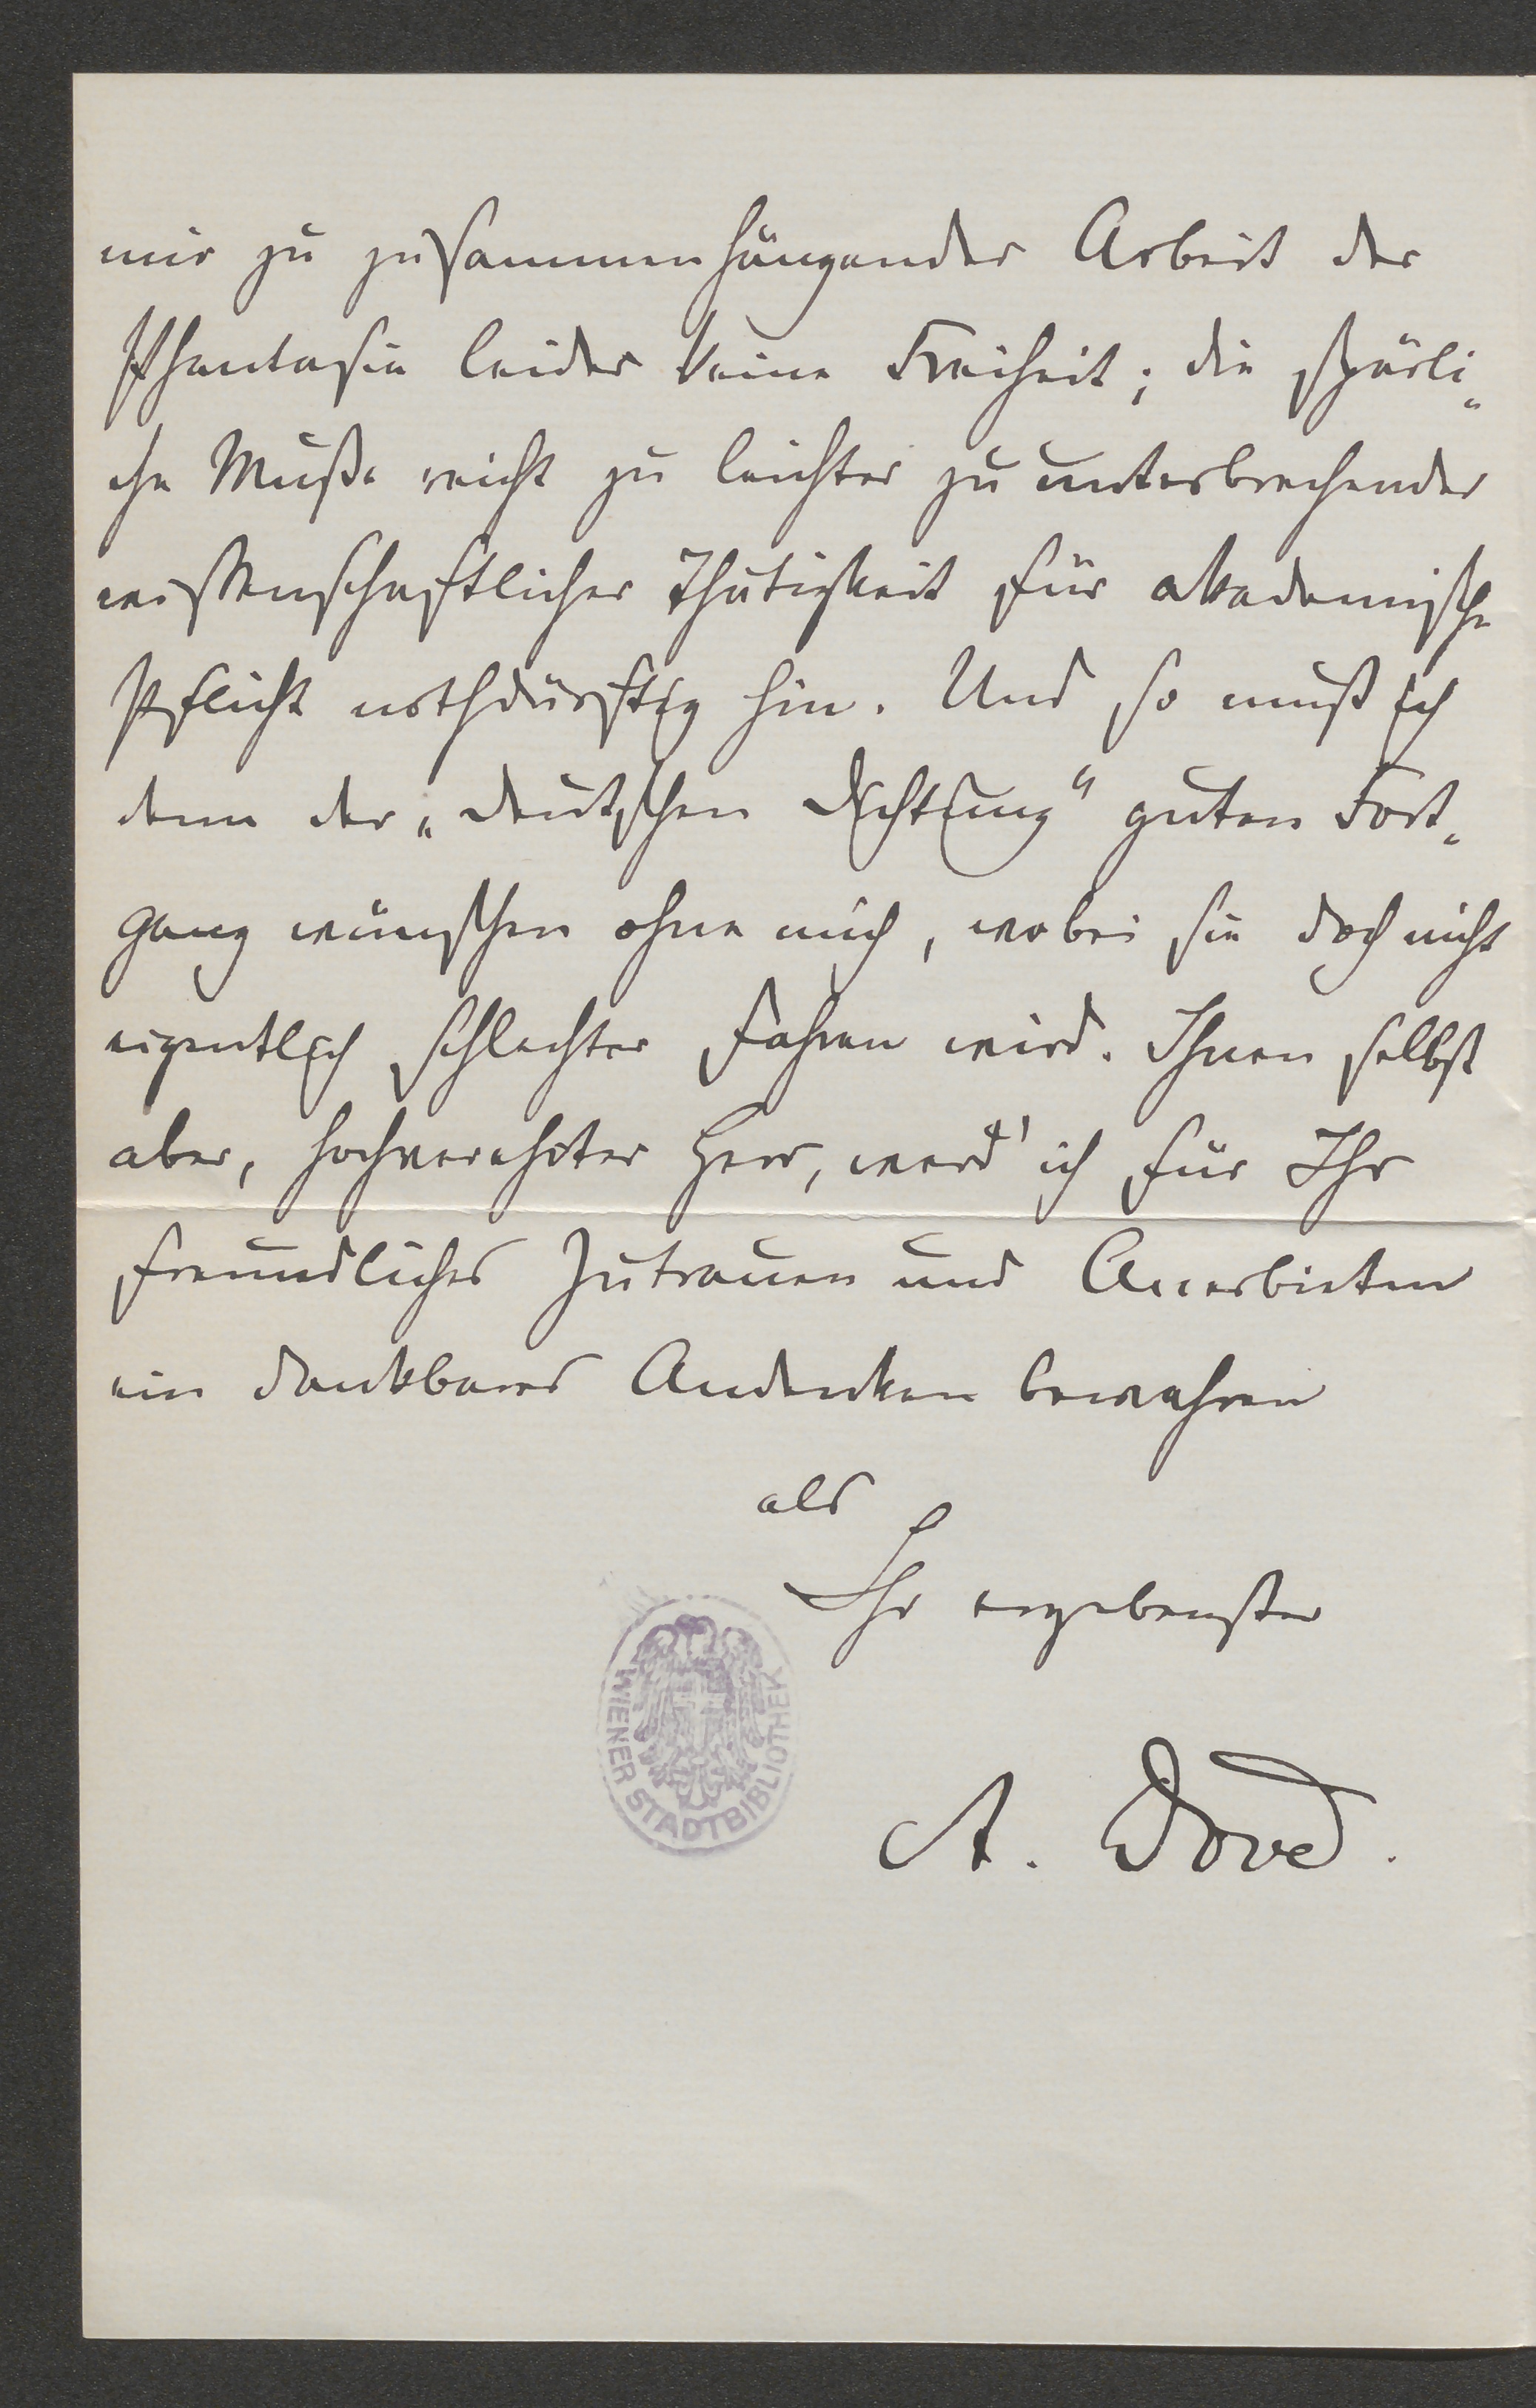 mir zu zusammenhängender Arbeit der
Phantasie leider keine Freiheit; die spärli„
che Muße reicht zu leichter zu unterbrechender
wissenschaftlicher Thätigkeit für akademische
Pflicht nothdürftig hin. Und so muß ich
denn der „deutschen Dichtung“ guten Fort„
gang wünschen ohne mich, wobei sie doch nicht
eigentlich schlechter fahren wird. Ihnen selbst
aber, hochverehrter Herr, werd' ich für Ihr
freundliches Zutrauen und Anerbieten
ein dankbares Andenken bewahren
als
Ihr ergebenster
WIENER STADTBIBLIOTHEK
A. Dove.